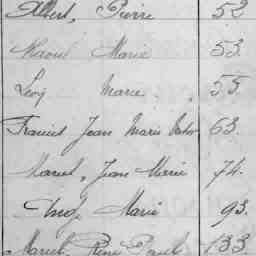 Albert, Pierre 52
Raoul Marie 53.
Marie 55.
Francis Jean Marie 63.
Marcel, Jean Marie 74.
Marie 93.
Marcel René Paul 133.